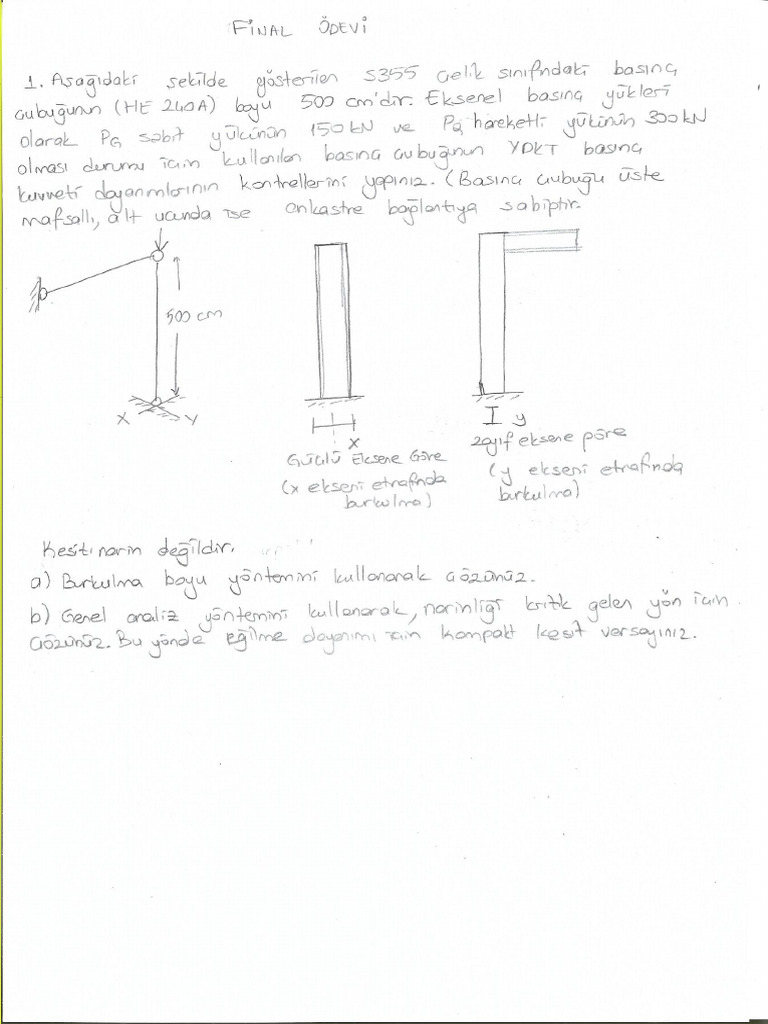 FİNAL ÖDEVİ
1. Aşağıdaki şekilde gösterilen S355 çelik sınıfındaki basınç
çubuğunun (HE 240A) boyu 500 cm'dir. Eksenel basınç yükleri
olarak PG sabit yükünün 150 kN ve PQ hareketli yükünün 300 kN
olması durumu için kullanılan basınç çubuğunun YDKT basınç
kuvveti dayanımlarının kontrellerini yapınız. (Basınç çubuğu üste
mafsallı, alt ucunda ise ankastre bağlantıya sahiptir.
500 cm
X Y
x
Güçlü Eksene Göre
(x ekseni etrafında
burkulma)
I y
zayıf eksene göre
(y ekseni etrafında
burkulma)
Kesit narin değildir.
a) Burkulma boyu yöntemini kullanarak çözünüz.
b) Genel analiz yöntemini kullanarak, narinliği kritik gelen yön için
çözünüz. Bu yönde eğilme dayanımı için kompakt kesit varsayınız.